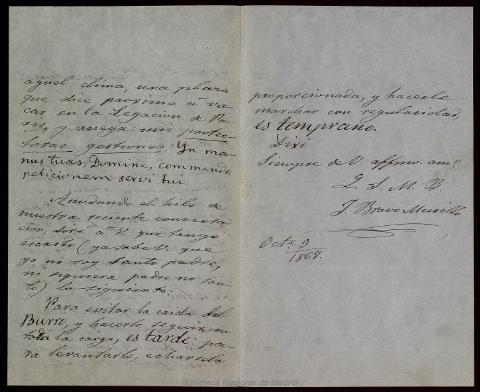 aquel clima, una plaza
que dice proxima á va-
car en la Legacion de Pa-
ris, y ruega mis protec-
toras gestiones. Yn ma-
nus tuas, Domine, commendo
petitionem servi tui.
Anudando el hilo de
nuestra reciente conversa-
cion, diré á V. que tengo
escrito (ya sabe V. que
yo no soy Santo padre,
ni siquiera padre no san-
to) lo siguiente:
Para evitar la caida del
Burro, y hacerle seguir con
toda la carga, es tarde: pa-
ra levantarle, echarsela
proporcionada, y hacerle
marchar con regularidad,
es temprano.
Dixi.
Siempre de V. affmo. amo.
Q. S. M. B.
J. Bravo Murillo
Octe. 3
1868.
Biblioteca Regional de Madrid